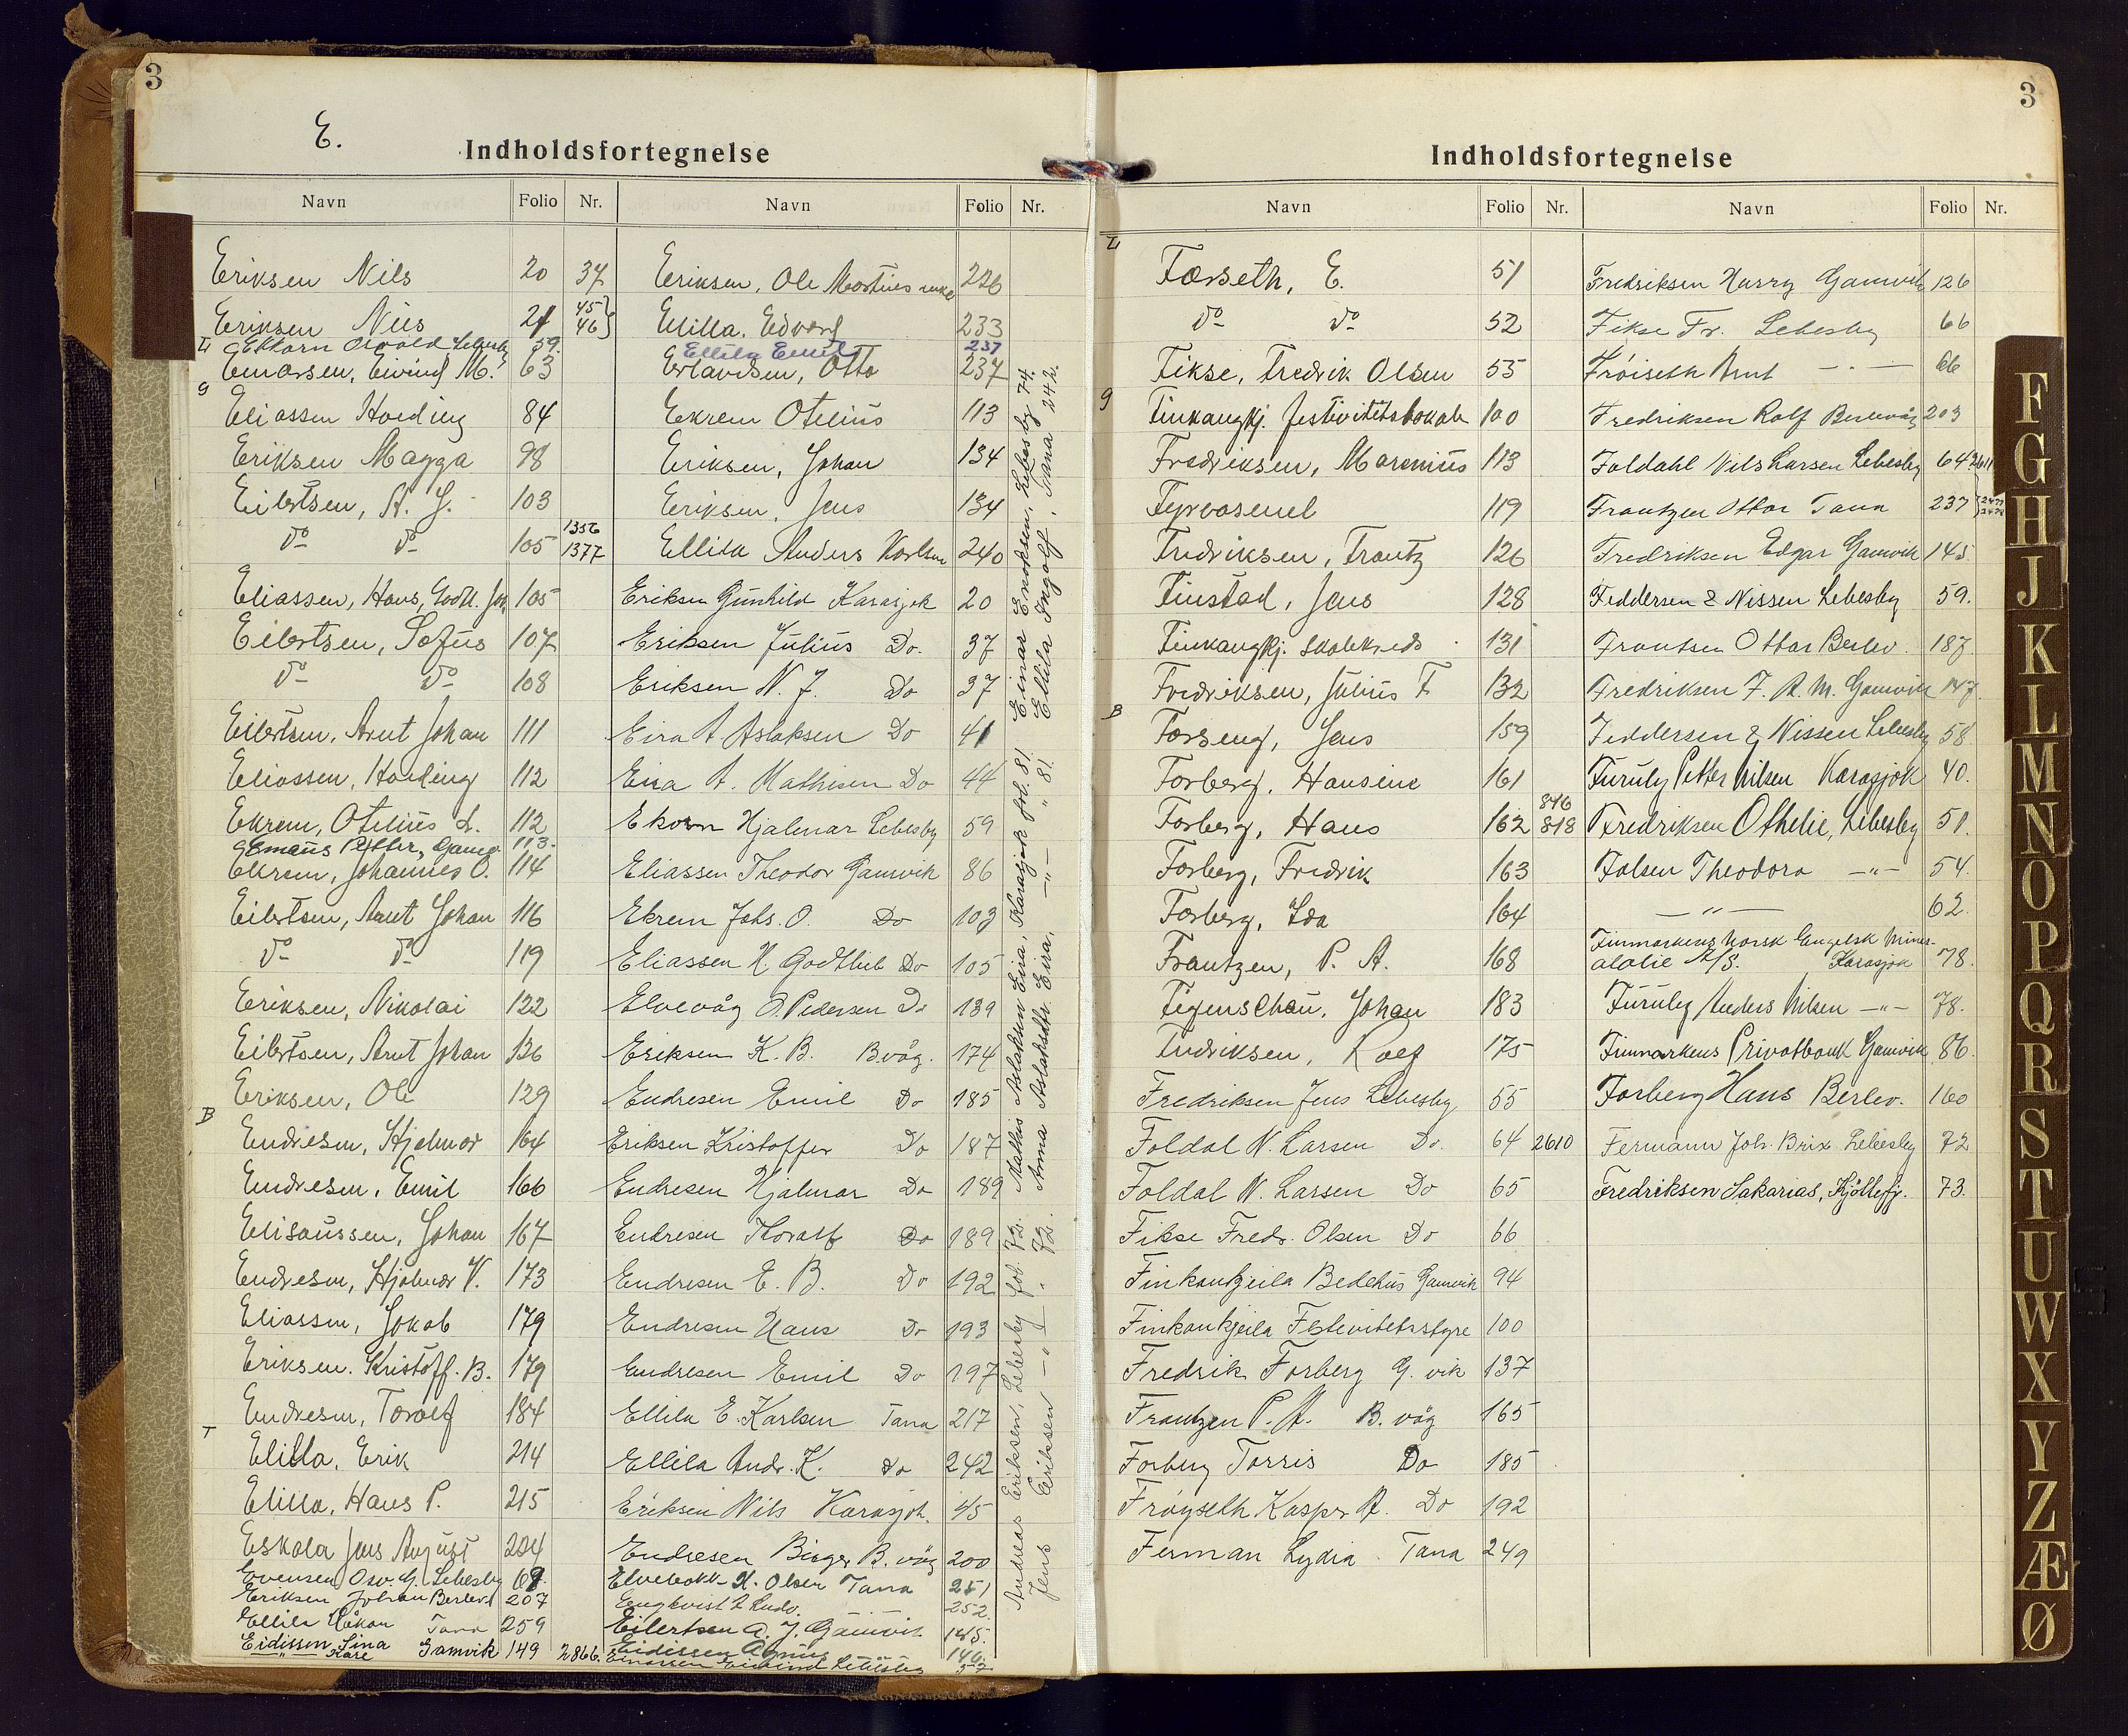 3
E.
Indholdsfortegnelse
Navn Folio Nr. Navn Folio Nr.
Eriksen Nils 20 37
Eriksen Nils 21 45 46
L Ekkorn Osvald Lebesby 59.
Einarsen, Eivind M. 63
g
Eliassen Hoeding 84
Eriksen Magga 98
Eilertsen, A. J. 103
do do 105 1356 1377
Eliassen, Hans, Godtl. Joh. 105
Eilertsen, Sofus 107
do do 108
Eilertsen, Arnt Johan 111
Eliassen, Hoeding 112
Ekrem, Otelius L. 112
Emaus Petter, Gamv. 113.
Ekrem, Johannes O. 114
Eilertsen, Arnt Johan 116
do do 119
Eriksen, Nikolai 122
Eilertsen, Arnt Johan 126
Eriksen, Ole 129
B
Endresen, Hjelmar 164
Endresen, Emil 166
Elisaussen, Johan 167
Endresen, Hjalmar V. 173
Eliassen, Jakob 179
Eriksen. Kristoff. B. 179
Endresen, Toralf 184
T
Elilla, Erik 214
Elilla, Hans P. 215
Eskola Jens August 224
Evensen Osv. G. Lebesby 67.
Eriksen Johan Berlev. 207
Ellila Håkon Tana 259
Eidissen Lina Gamvik 149 2866.
" Kåre
Eriksen, Ole Mortines enke 226
Elilla. Edvard 233
Ellila Emil 237
Erlandsen, Otto 237
Ekrem Otelius 113
Eriksen, Johan 134
Eriksen, Jens 134
Ellila Anders Karlsen 240
Eriksen Gunhild Karasjok 20
Eriksen Julius Do. 37
Eriksen N. J. Do 37
Eira A Aslaksen Do 41
Eira A. Mathisen Do 44
Ekorn Hjalmar Lebesby 59
Eliassen Theodor Gamvik 86
Ekrem Johs. O. Do 103
Eliassen H. Godtlieb Do 105
Elvevåg O. Pedersen Do 139
Eriksen K. B. B.våg. 174
Endresen Emil Do 185
Eriksen Kristoffer Do 187
Endresen Hjalmar Do 189
Endresen Thoralf Do 189
Endresen E. B. Do 192
Endresen Hans Do 193
Endresen Emil Do 197
Ellila E. Karlsen Tana 217
Ellila Andr. K. Do 242
Eriksen Nils Karasjok. 45
Endresen Birger B. våg 200
Elvebakk H. Olsen Tana 251
Engkvist 252.
Eilertsen A. J. Gamvik 145.
Eidissen Agnus 146.
Einarsen Eivind Lebesby 57
Andreas Eriksen, Lebesby fol. 72. Mathis Aslaksen Eira, Karasjok fol. 81. Einar Enoksen, Lebesby 74.
Jens Eriksen — " — " 72. Anna Aslaksdtr. Eira, — " — " 81. Ellila Ingolf, Tana 242.
3
Indholdsfortegnelse
Navn Folio Nr. Navn Folio Nr.
L
Forseth, E. 51
do do 52
Fikse, Fredrik Olsen 55
g
Finkongkj. festivitetslokale 100
Fredriksen, Marenius 113
Fyrvæsenet 119
Fredriksen, Frantz 126
Finstad, Jens 128
Finkongkj. skolekreds 131
Fredriksen, Julius F. 132
B
Forseng, Jens 159
Forberg, Hansine 161
Forberg, Hans 162 846 818
Forberg, Fredrik 163
Forberg, Ida 164
Frantzen, P. A. 168
Figenschau, Johan 183
Fredriksen, Rolf 175
Fredriksen Jens Lebesby 55
Foldal N. Larsen Do. 64 2610
Foldal N. Larsen Do 65
Fikse Fredr. Olsen Do 66
Finkonkjeila Bedehus Gamvik 94
Finkonkjeila Festivitetsstyre 100
Fredrik Forberg G. vik 137
Frantzen P. A. B. våg 165
Forberg Torris Do 185
Frøyseth Kaspr A. Do 192
Ferman Lydia Tana 249
Fredriksen Harry Gamvik 126
Fikse Fr. Lebesby 66
Frøiseth Arnt — " — 66
Fredriksen Rolf Berlevåg 203
Foldahl Nils Larsen Lebesby 64 2611
Frantzen Ottar Tana 237
Fredriksen Edgar Gamvik 145
Feddersen & Nissen Lebesby 59.
Frantsen Ottar Berlev. 187
Fredriksen F. A. M. Gamvik 147
Feddersen & Nissen Lebesby 58
Furuly Petter Nilsen Karasjok 40.
Fredriksen Othelie, Lebesby 51.
Folsen Theodora — " — 54.
— " — 62.
Finmarkens Norsk Engelsk Miner-
alolie A/S. Karasjok 78.
Furuly Anders Nilsen — " — 78.
Finmarkens Privatbank Gamvik 86.
Forberg Hans Berlev. 160
Fermann Joh. Brix Lebesby 72
Fredriksen Sakarias, Kjøllefj. 73.
F
G
H
J
K
L
M
N
O
P
Q
R
S
T
U
W
X
Y
Z
Æ
Ø